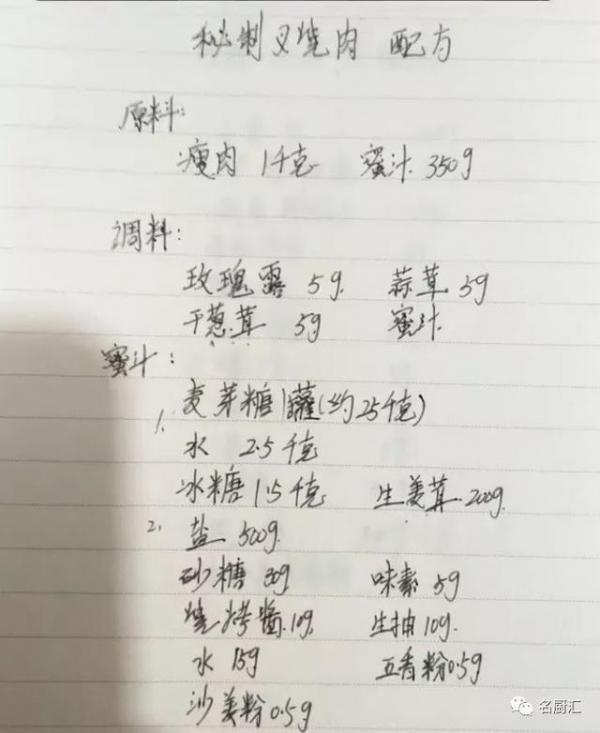 秘制叉烧肉 配方
原料:
瘦肉 1千克 蜜汁 350g
调料:
玫瑰露 5g. 蒜茸 5g
干葱茸 5g 蜜汁.
蜜汁:
1. 麦芽糖1罐(约25千克)
水 2.5千克
冰糖 1.5千克 生姜茸.200g.
2. 盐 500g.
砂糖 30g 味素 5g
烧烤酱.10g. 生抽 10g.
水 15g 五香粉0.5g
沙姜粉0.5g
名厨汇